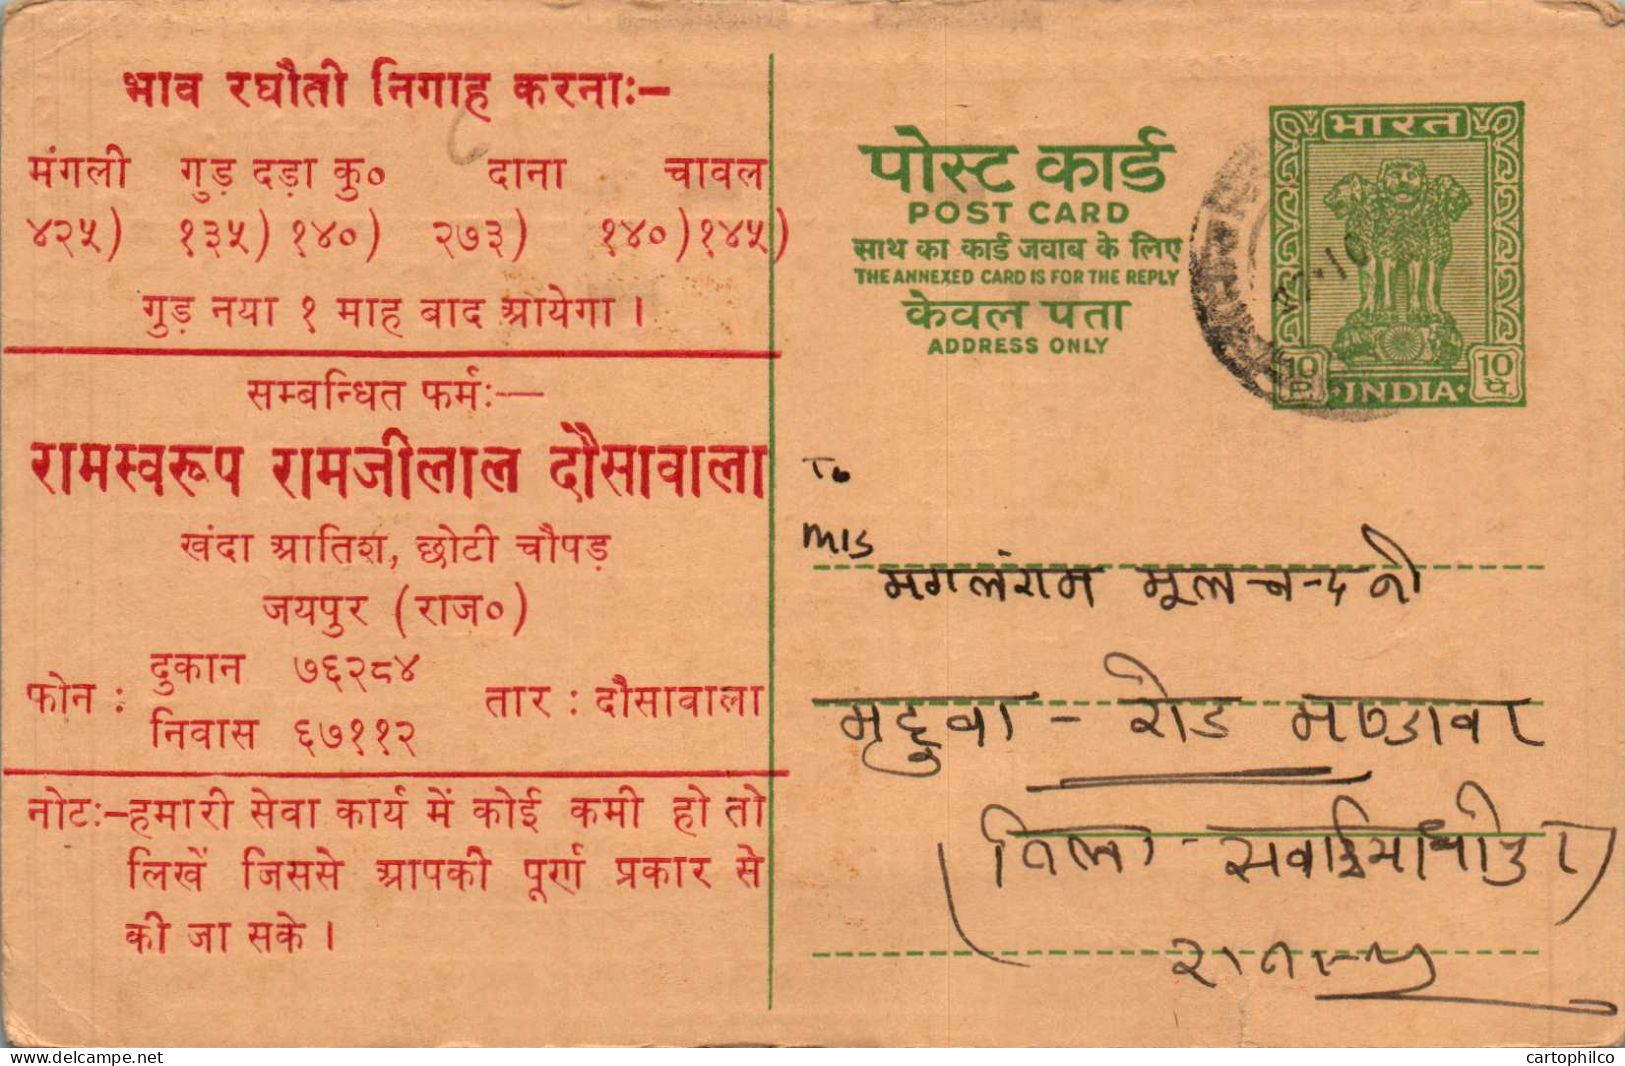 भाव रघौती निगाह करनाः-
मंगली गुड़ दड़ा कु० दाना चावल
४२५) १३५) १४०) २७३) १४०) १४५)
गुड़ नया १ माह बाद आयेगा ।
सम्बन्धित फर्मः—
रामस्वरूप रामजीलाल दौसावाला
खंदा आतिश, छोटी चौपड़
जयपुर (राज०)
फोन : दुकान ७६२८४
निवास ६७११२
तार : दौसावाला
नोटः-हमारी सेवा कार्य में कोई कमी हो तो
लिखें जिससे आपकी पूर्ण प्रकार से
की जा सके ।
पोस्ट कार्ड
POST CARD
साथ का कार्ड जवाब के लिए
THE ANNEXED CARD IS FOR THE REPLY
केवल पता
ADDRESS ONLY
भारत
10 P. 10 पै.
INDIA
To
M/S
मगलंराम मूलचन्द जी
रोड मण्डावर
(जिला - सवाईमाधोपुर)
cartophilia.eu
cartophilco